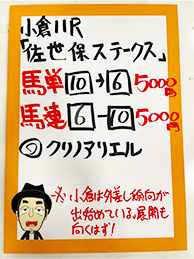 小倉11R
「佐世保ステークス」
馬単10→6 5000円
馬連6-10 5000円
⑦クリノアリエル
※小倉は外差し傾向が
出始めている。展開も
向くはず！